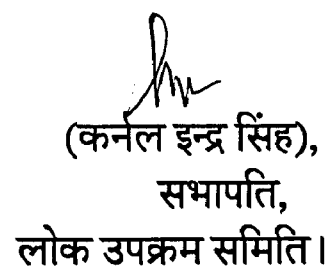 (कर्नल इन्द्र सिंह),
सभापति,
लोक उपक्रम समिति।